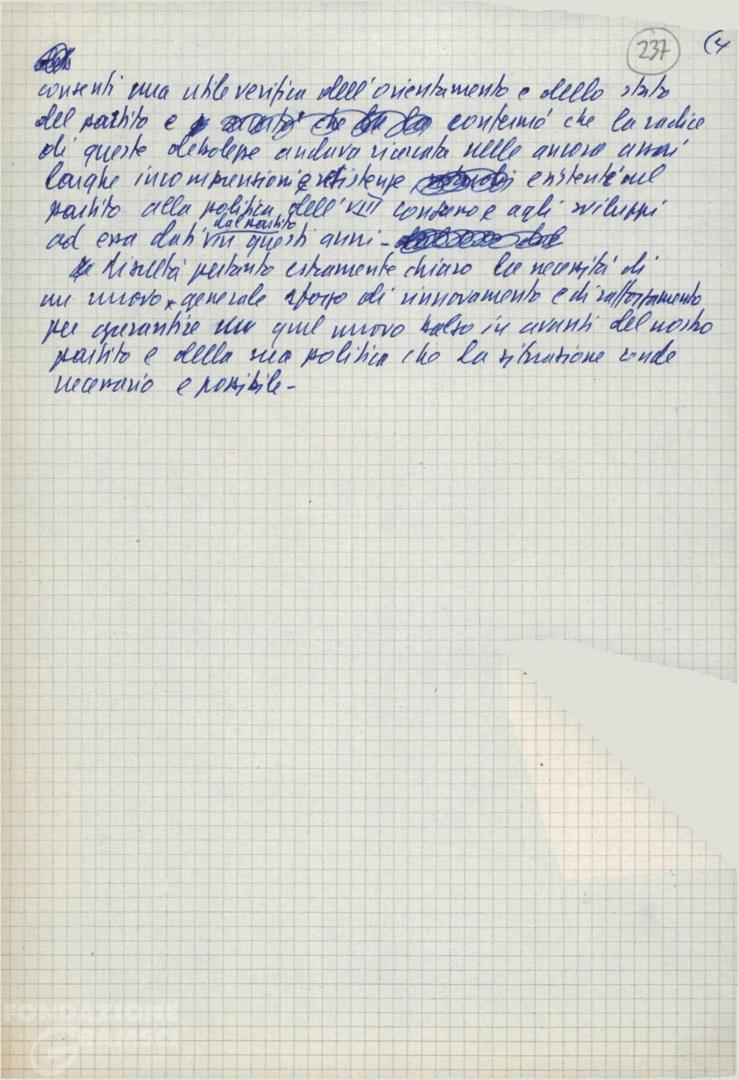 237 (4
consentì una utile verifica dell'orientamento e dello stato
del partito e confermò che la radice
di queste debolezze andava ricercata nelle ancora assai
larghe incomprensioni e resistenze esistenti nel
partito alla politica dell'VIII congresso e agli sviluppi
dal partito
ad essa dati in questi anni -
Risultà pertanto estramente chiaro la necessità di
un nuovo generale sforzo di rinnovamento e di rafforzamento
per garantire quel nuovo balzo in avanti del nostro
partito e della sua politica che la situazione rende
necessario e possibile -
FONDAZIONE
GRAMSCI